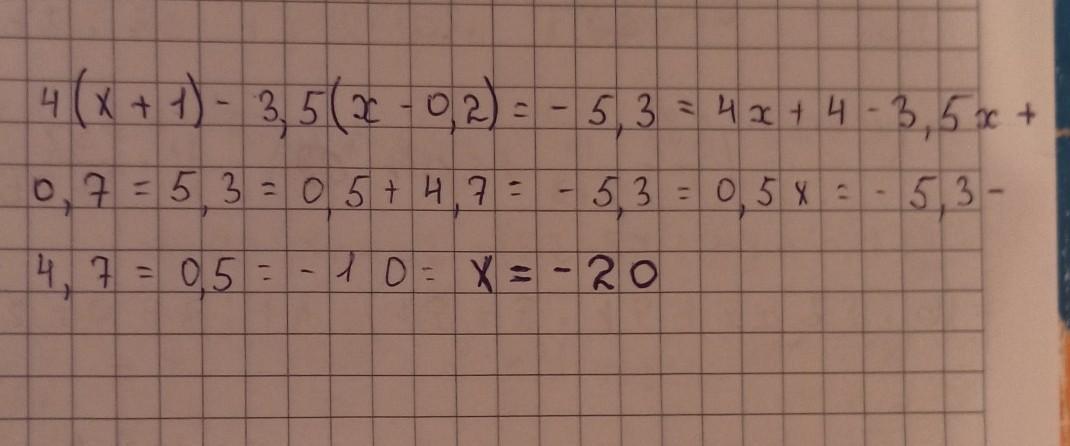 4(x + 1) - 3,5(x - 0,2) = - 5,3 = 4x + 4 - 3,5x +
0,7 = 5,3 = 0,5 + 4,7 = - 5,3 = 0,5x = - 5,3 -
4,7 = 0,5 = - 10 = x = - 20